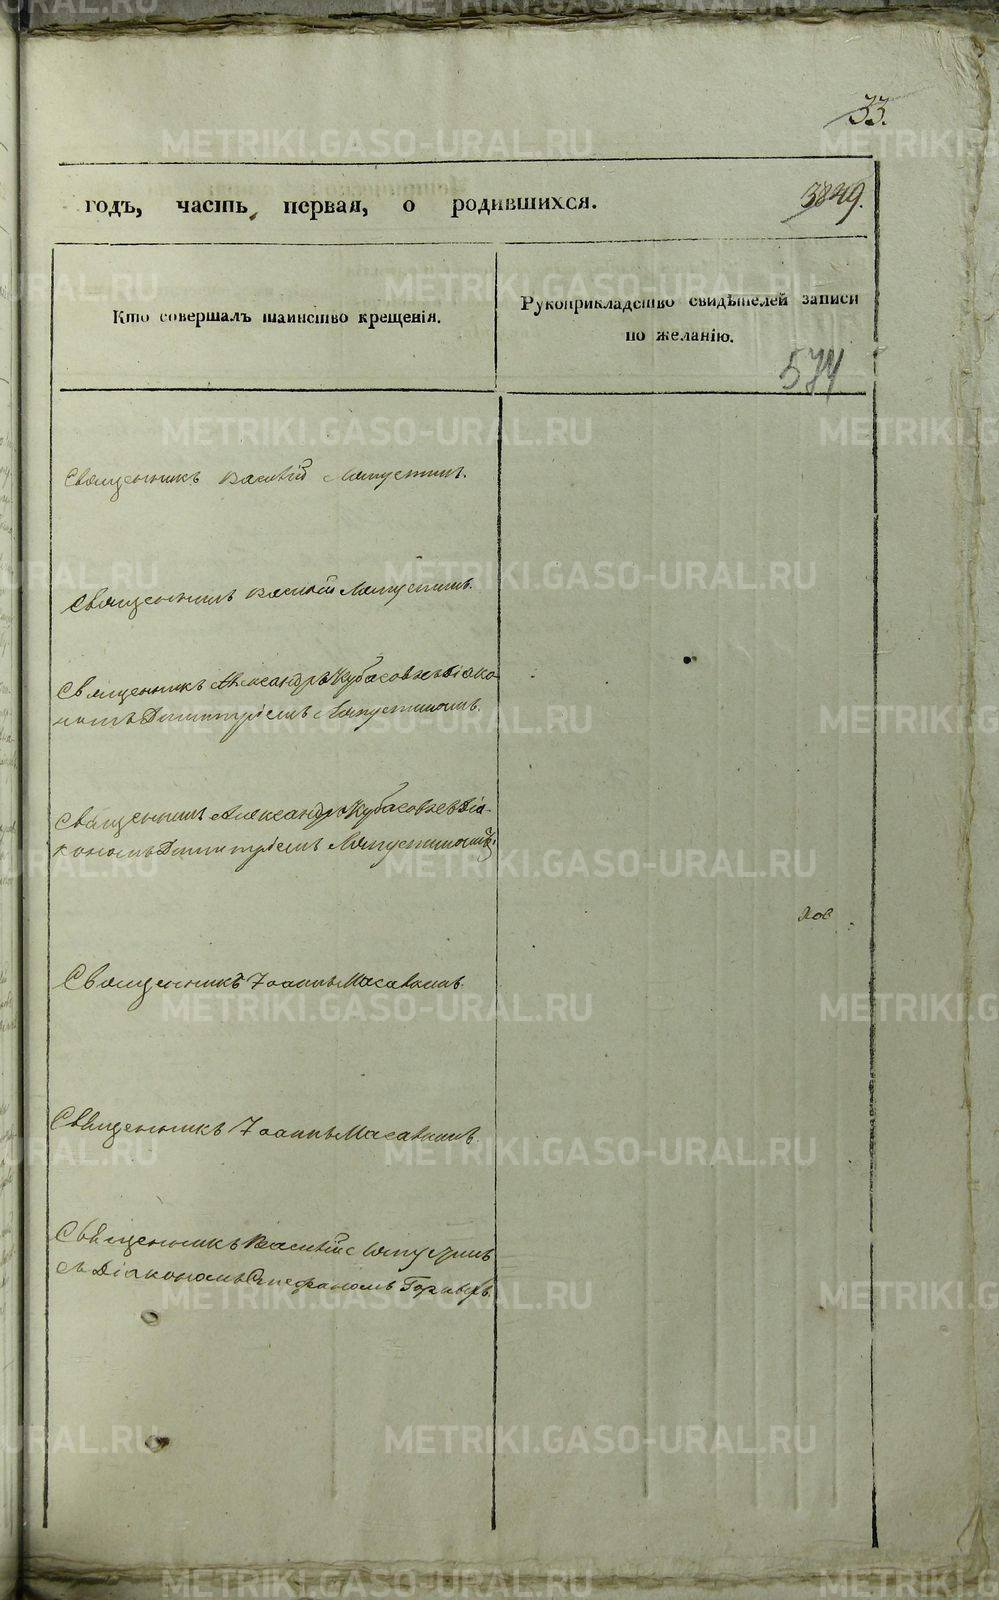 33.
годъ, часть первая, о родившихся.
3849.
Кто совершалъ таинство крещенія.
Рукоприкладство свидѣтелей записи
по желанію.
574
Священникъ Василій Ляпустинъ.
Священникъ Василій Ляпустинъ.
Священникъ Александръ Кубасовъ съ Діако-
номъ Димитріемъ Ляпустиномъ.
Священникъ Александръ Кубасовъ съ Діа-
кономъ Димитріемъ Ляпустиномъ
Священникъ Іоаннъ
Священникъ Іоаннъ
Священникъ Василій Ляпустинъ
съ Діакономъ Стефаномъ
METRIKI.GASO-URAL.RU